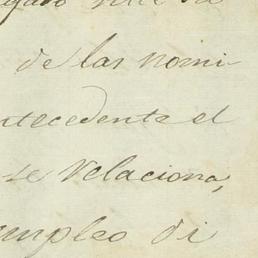 de las nomi-
ntecedente el
se relaciona,
empleo di